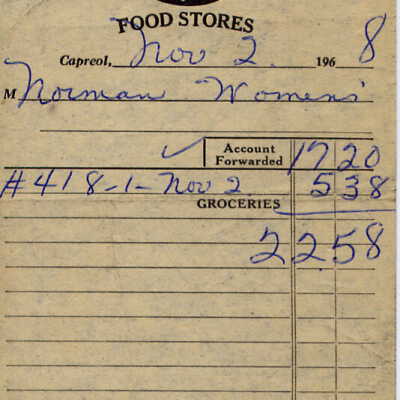 FOOD STORES
Capreol, Nov 2 1968
M Norman Womens'
Account Forwarded 17 20
#418-1-Nov 2 5 38
GROCERIES
22 58